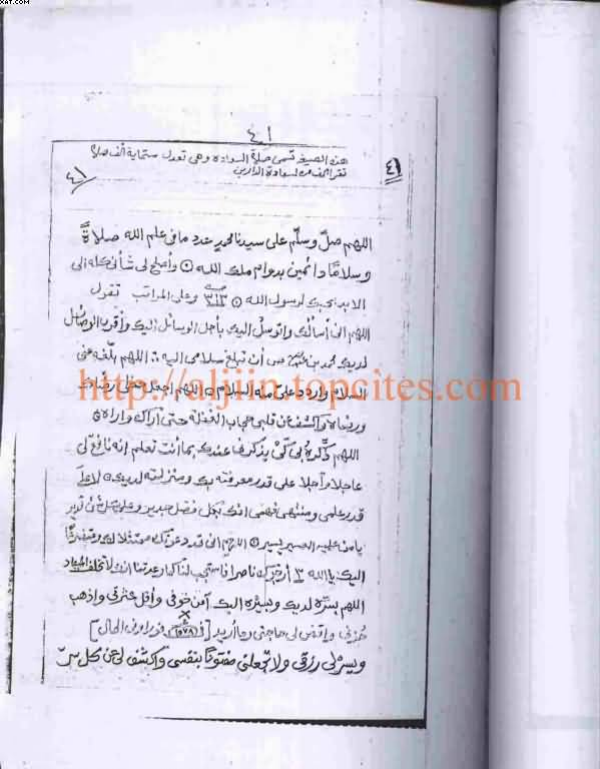 XAT.COM
٤١
هذه الصيغة تسمى صلاة السعادة وهي تعدل ستماية الف صلاة
٤١
٤١
لسعادة الدارين
اللهم صلّ وسلّم على سيدنا محمد عدد ما في علم الله صلاةً
وسلامًا دائمين بدوام ملك الله وأصلح لي شأني كله الى
الابد بحبك لرسول الله وعلى المراتب تقول
اللهم اني أسألك واتوسل اليك بأجل الوسائل اليك وأقرب الوسائل
لديك محمد بن أن تبلغ سلامي اليه اللهم بلّغه عني
السلام واردد علي منه السلام اللهم اجعل
http://aljiin.topcites.com
ورضاه واكشف عن قلبي حجاب الغفلة حتى أراك واراه
اللهم ذكّره بي كي يذكرني عندك بما أنت تعلم انه نافع لي
عاجلا وآجلا على قدر معرفته بك ومنزلته لديك لا على
قدر علمي ومنتهى فهمي انك بكل فضل جدير وعلى كل شئ قدير
يا من عليه العسير يسير اللهم اني قد دعوتك ممتثلا
اليك يا الله ٣ ناصرا فاستجب لنا كما وعدتنا انك لا تخلف الميعاد
اللهم بسرّه لديك وبسيره اليك آمن خوفي وأقل عثرتي واذهب
حزني واقض لي حاجتي وما أريد
ويسر لي رزقي ولا تجعلني مفتونًا بنفسي واكشف لي عن كل سرّ